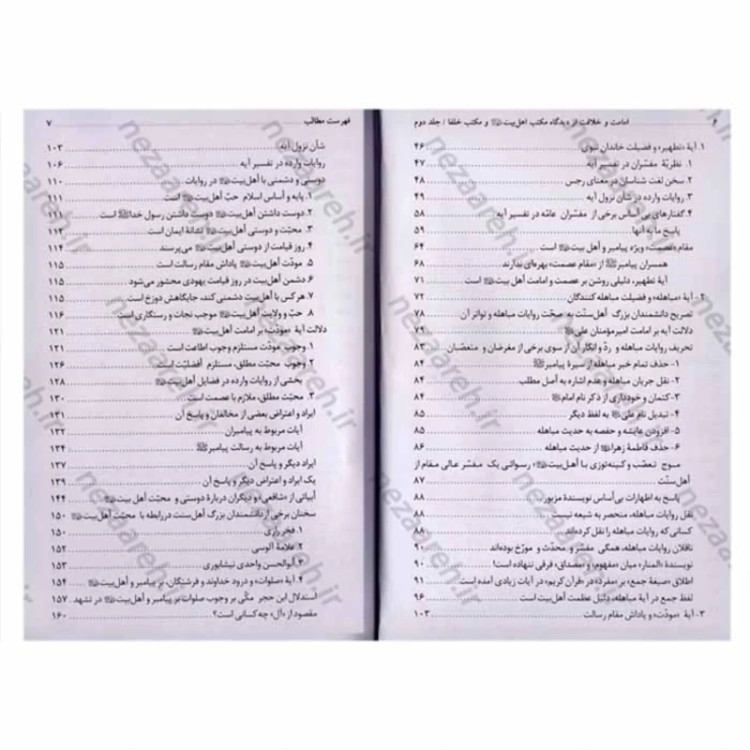 ۶ امامت و خلافت از دیدگاه مکتب اهل‌بیت و مکتب خلفا / جلد دوم
۱. آیهٔ «تطهیر» و فضیلت خاندان نبوی ۴۶
۱. نظریّهٔ مفسّران در تفسیر آیه ۴۷
۲. سخن لغت شناسان در معنای رجس ۴۸
۳. روایات وارده در شأن نزول آیه ۴۹
۴. گفتارهای بی‌اساس برخی از مفسّران عامّه در تفسیر آیه ۵۸
پاسخ ما به آنها ۵۹
مقام «عصمت» ویژه پیامبر و اهل بیت است ۶۴
همسران پیامبر از «مقام عصمت» بهره‌ای ندارند ۶۸
آیهٔ تطهیر، دلیلی روشن بر عصمت و امامت اهل‌بیت است ۷۱
۲- آیهٔ «مباهله» و فضیلت مباهله کنندگان ۷۲
تصریح دانشمندان بزرگ اهل‌سنّت به صحّت روایات مباهله و تواتر آن ۷۸
دلالت آیه بر امامت امیرمؤمنان علی
تحریف روایات مباهله و ردّ و انکار آن از سوی برخی از مغرضان و متعصّبان ۸۳
۱- حذف تمام خبر مباهله از سیرهٔ پیامبر ۸۴
۲- نقل جریان مباهله و عدم اشاره به أصل مطلب ۸۴
۳- کتمان و خودداری از ذکر نام امام ۸۴
۴- تبدیل نام علی به لفظ دیگر ۸۵
۵- افزودن عایشه و حفصه به حدیث مباهله ۸۵
۶- حذف فاطمهٔ زهرا از حدیث مباهله ۸۶
موج تعصّب و کینه‌توزی با أهل‌بیت رسوائی یک مفسّر عالی مقام از
أهل‌سنّت ۸۷
پاسخ به اظهارات بی‌أساس نویسندهٔ مزبور ۸۸
نقل روایات مباهله، منحصر به شیعه نیست ۸۸
کسانی که روایات مباهله را نقل کرده‌اند
ناقلان روایات مباهله، همگی مفسّر و محدّث و مورّخ بوده‌اند ۹۰
نویسندهٔ «المنار» میان «مفهوم» و «مصداق» فرقی ننهاده است! ۹۰
اطلاق «صیغهٔ جمع» بر «مفرد» در «قرآن کریم» در آیات زیادی آمده است ۹۱
لفظ جمع در آیهٔ مباهله، دلیل عظمت أهل‌بیت است ۹۶
۳- آیهٔ «مودّت» و پاداش مقام رسالت ۱۰۳
فهرست مطالب ۷
شأن نزول آیه ۱۰۳
روایات وارده در تفسیر آیه ۱۰۶
دوستی و دشمنی با أهل‌بیت در روایات ۱۱۰
۱. پایه و أساس اسلام حبّ أهل‌بیت است ۱۱۱
۲. دوست داشتن أهل‌بیت دوست داشتن رسول خدا است ۱۱۱
۳. محبّت و دوستی أهل‌بیت نشانهٔ ایمان است
۴. روز قیامت از دوستی أهل‌بیت می‌پرسند ۱۱۴
۵. مودّت أهل‌بیت پاداش مقام رسالت است ۱۱۵
۶. دشمن أهل‌بیت در روز قیامت یهودی محشور می‌شود ۱۱۵
۷. هر کس با أهل‌بیت دشمنی کند، جایگاهش دوزخ است ۱۱۵
۸. حبّ و ولایت أهل‌بیت موجب نجات و رستگاری است ۱۱۶
دلالت آیهٔ «مودّت» بر امامت أهل‌بیت ۱۲۱
۱. وجوب مودّت مستلزم وجوب اطاعت است ۱۲۱
۲. وجوب محبّت مطلق، مستلزم أفضلیّت است ۱۲۶
بخشی از روایات وارده در فضایل أهل‌بیت ۱۲۸
۳. محبّت مطلق، ملازم با عصمت است
ایراد و اعتراض بعضی از مخالفان و پاسخ آن ۱۳۱
آیات مربوط به پیامبران ۱۳۲
آیات مربوط به رسالت پیامبر ۱۳۴
ایراد دیگر و پاسخ آن ۱۳۷
یک ایراد و اعتراض دیگر و پاسخ آن ۱۳۹
أبیاتی از «شافعی» و دیگران دربارهٔ دوستی و محبّت أهل‌بیت ۱۴۴
سخنان برخی از دانشمندان بزرگ أهل سنت در رابطه با محبّت أهل‌بیت ۱۵۰
۱. فخر رازی ۱۵۰
۲. علّامهٔ آلوسی ۱۵۲
۳. أبوالحسن واحدی نیشابوری ۱۵۳
۴. آیهٔ «صلوات» و درود خداوند و فرشتگان، بر پیامبر و أهل‌بیت ۱۵۴
استدلال ابن حجر مکّی بر وجوب صلوات بر پیامبر و أهل‌بیت در تشهد ۱۵۷
مقصود از «آل» چه کسانی است؟ ۱۶۰
nezaareh.ir